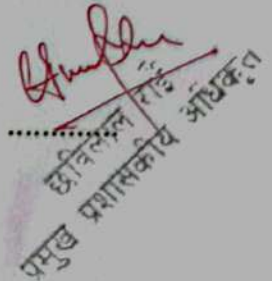 छविलाल राई
प्रमुख प्रशासकीय अधिकृत